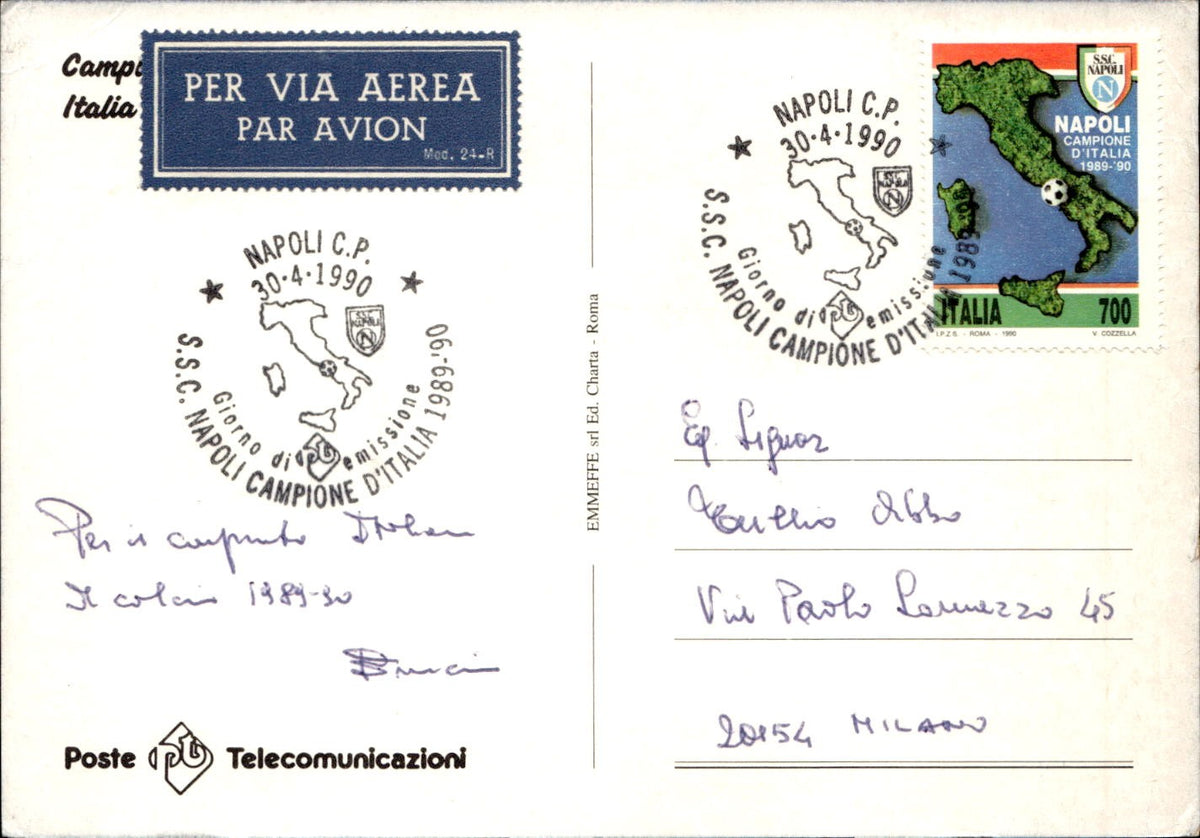 Campi
Italia
PER VIA AEREA
PAR AVION
Mod. 24-R
NAPOLI C.P.
30·4·1990
S.S.C. NAPOLI
Giorno di emissione
S.S.C. NAPOLI CAMPIONE D'ITALIA 1989-'90
Per il campionato Italiano
di calcio 1989-90
Poste Telecomunicazioni
EMMEFFE srl Ed. Charta - Roma
NAPOLI C.P.
30·4·1990
S.S.C. NAPOLI
Giorno di emissione
S.S.C. NAPOLI CAMPIONE D'ITALIA 1989-'90
S.S.C.
NAPOLI
N
NAPOLI
CAMPIONE
D'ITALIA
1989-'90
ITALIA 700
I.P.Z.S. - ROMA - 1990 V. COZZELLA
Eg. Signor
Tullio Abbo
Via Paolo 45
20154 MILANO